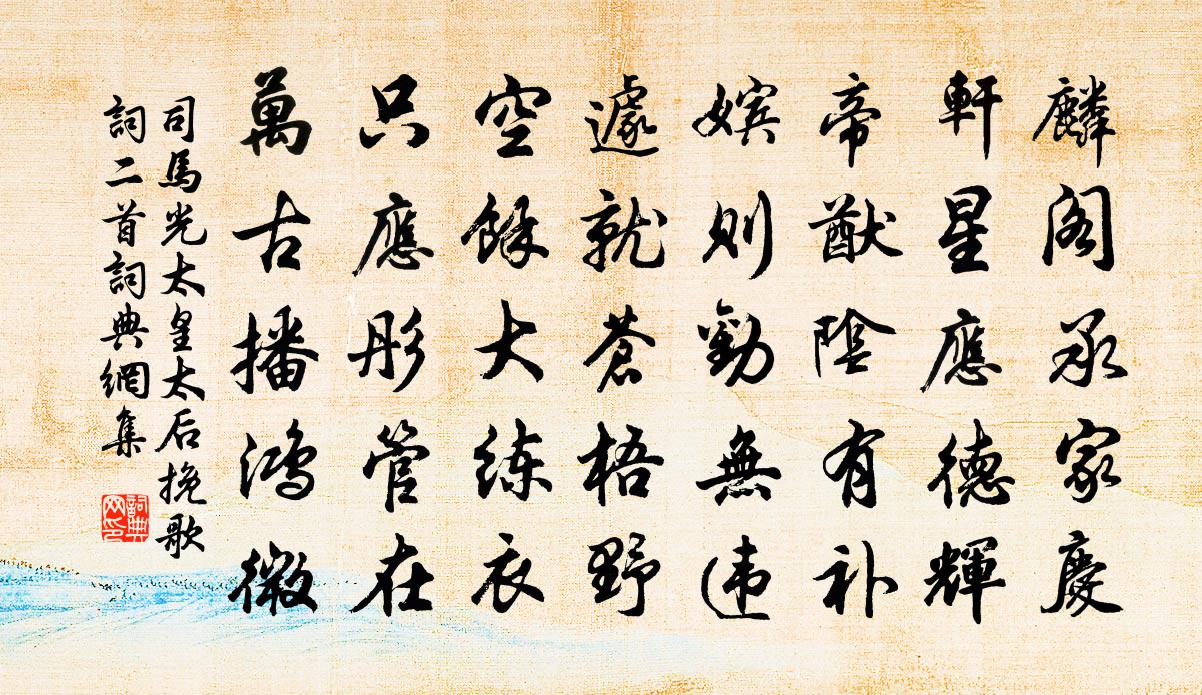 麟阁承家慶
軒星應德輝
帝猷陰有补
嫔则勤無违
遽就蒼梧野
空馀大练衣
只應彤管在
萬古播鸿徽
司馬光太皇太后挽歌
詞二首詞典網集
詞典
网印